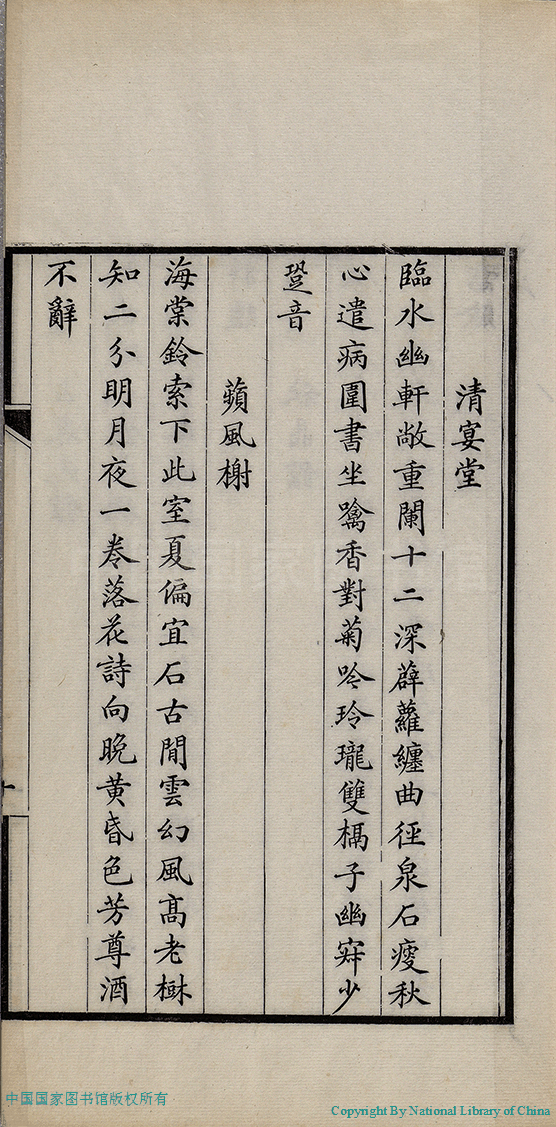 清宴堂
臨水幽軒敞重闌十二深薜蘿纏曲徑泉石瘦秋
心遣病圍書坐噙香對菊吟玲瓏雙槅子幽寂少
跫音
蘋風榭
海棠鈴索下此室夏偏宜石古閒雲幻風高老樹
知二分明月夜一卷落花詩向晚黃昏色芳尊酒
不辭
中国国家图书馆版权所有
Copyright By National Library of China